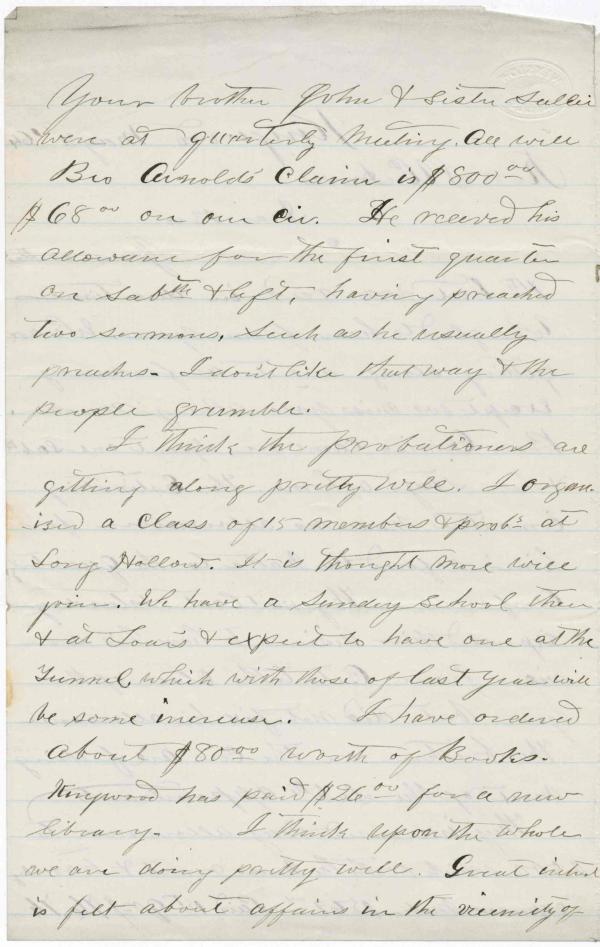 Your brother John & Sister Sallie
were at quarterly Meeting. All well
Bro Arnold's Claim is $800.00
$68.00 on our Cir. He receved his
allowance for the first quarter
on Sabth & left, having preached
two sermons, Such as he usually
preaches - I don't like that way & the
people grumble.
I think the probationers are
gitting along pretty well. I organ-
ised a Class of 15 members & prob's at
Long Hollow. It is thought more will
join. We have a Sunday School there
& at & expect to have one at the
Tunnel, which with those of last year will
be some increase. I have ordered
about $80.00 worth of Books.
Kingwood has paid $26.00 for a new
library - I think upon the whole
we are doing pretty well. Great interest
is felt about affairs in the vicinity of